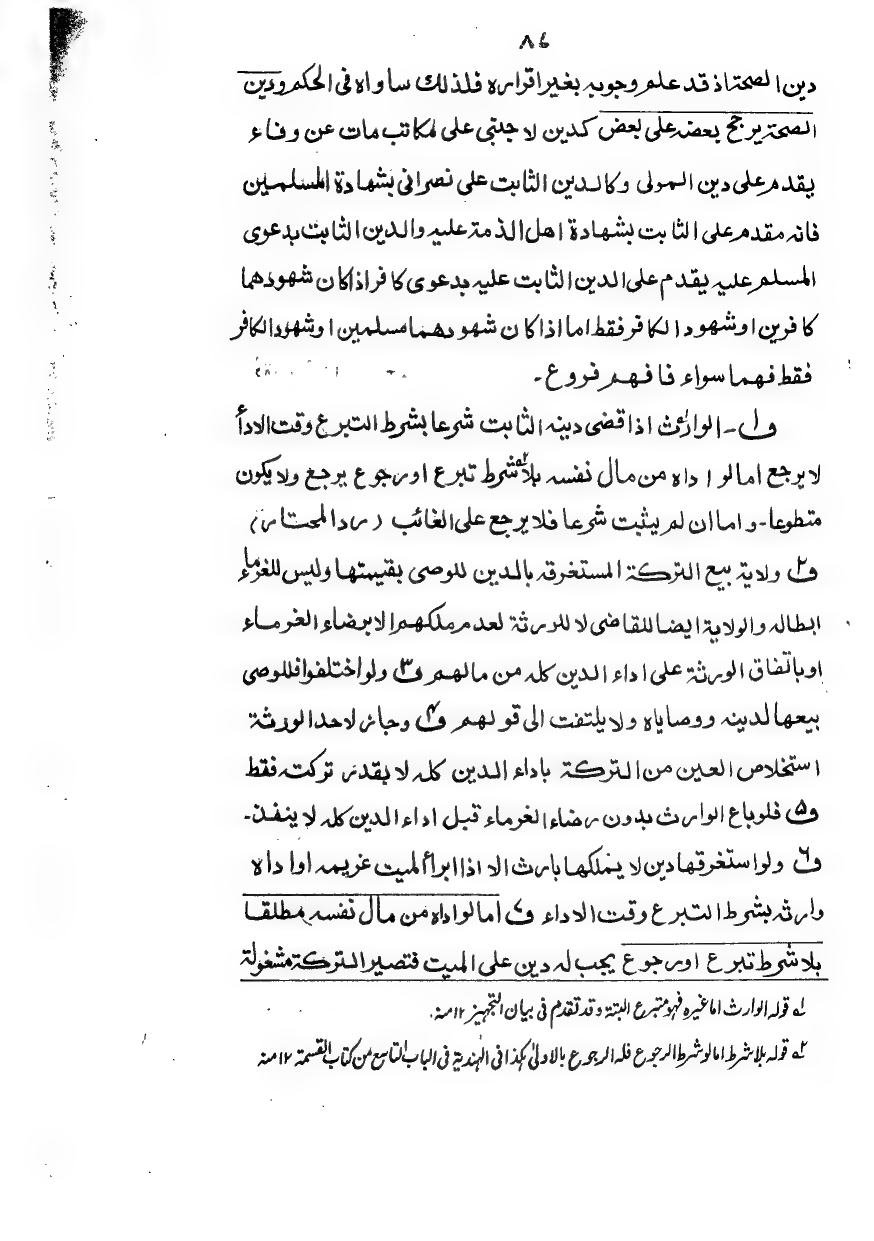 ٨٦
دين الصحة اذ قد علم وجوبه بغير اقراره فلذلك ساواه فى الحكم ودين
الصحة يرجح بعضه على بعض كدين لاجنبى على مكاتب مات عن وفاء
يقدم على دين المولى وكالدين الثابت على نصرانى بشهادة المسلمين
فانه مقدم على الثابت بشهادة اهل الذمة عليه والدين الثابت بدعوى
المسلم عليه يقدم على الدين الثابت عليه بدعوى كافر اذا كان شهودهما
كافرين او شهود الكافر فقط اما اذا كان شهودهما مسلمين او شهود الكافر
فقط فهما سواء فافهم فروع۔
ف١۔ الوارث اذا قضى دينه الثابت شرعا بشرط التبرع وقت الاداء
لا يرجع اما لو اداه من مال نفسه بلا شرط تبرع او رجوع يرجع ولا يكون
متطوعا۔ واما ان لم يثبت شرعا فلا يرجع على الغائب (رد المحتار)
ف٢ ولاية بيع التركة المستغرقه بالدين للوصى بقيمتها وليس للغرماء
ابطاله والولاية ايضا للقاضى لا للورثة لعدم ملكهم الا برضاء الغرماء
او باتفاق الورثة على اداء الدين كله من مالهم ف٣ ولو اختلفوا فللوصى
بيعها لدينه ووصاياه ولا يلتفت الى قولهم ف٤ وجائز لاحد الورثة
استخلاص العين من التركة باداء الدين كله لا بقدر تركته فقط
ف٥ فلو باع الوارث بدون رضاء الغرماء قبل اداء الدين كله لا ينفذ۔
ف٦ ولو استغرقها دين لا يملكها بارث الا اذا ابرأ الميت غريمه او اداه
وارثه بشرط التبرع وقت الاداء ف٧ اما لو اداه من مال نفسه مطلقا
بلا شرط تبرع او رجوع يجب له دين على الميت فتصير التركة مشغولة
١ قوله الوارث اما غيره فهو متبرع البتة وقد تقدم فى بيان التجهيز ١٢ منه.
٢ قوله بلا شرط اما لو شرط الرجوع فله الرجوع بالاولى هكذا فى الهندية فى الباب التاسع من كتاب القسمة ١٢ منه